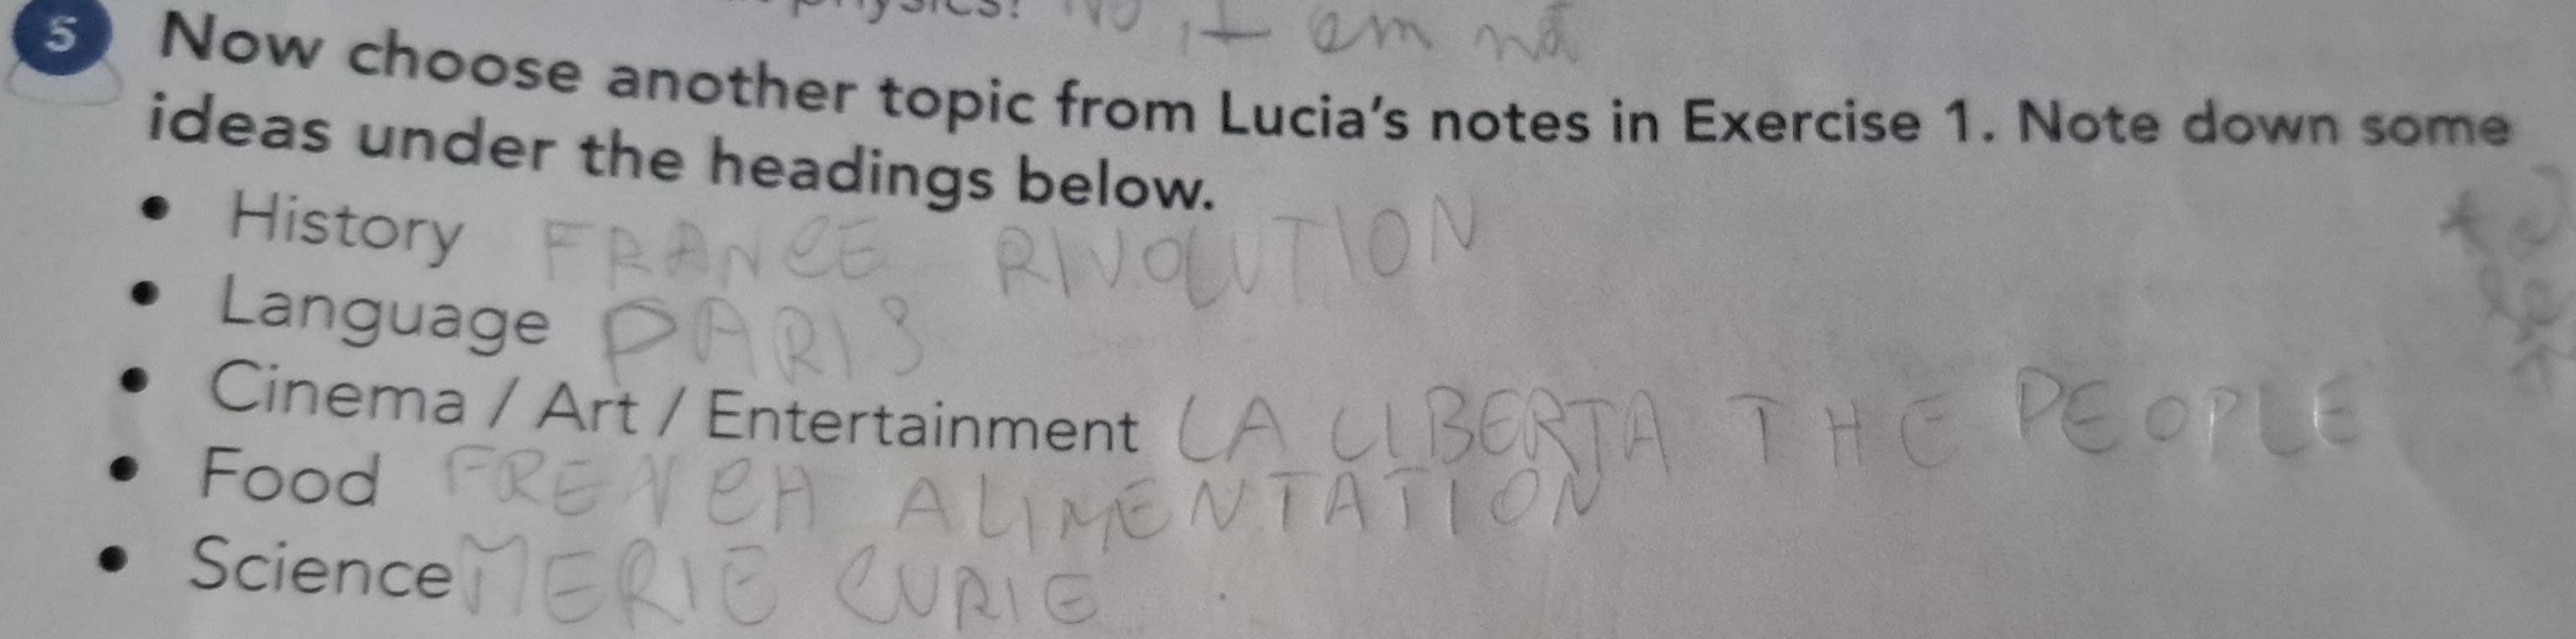 physics? No it am not
5 Now choose another topic from Lucia's notes in Exercise 1. Note down some
ideas under the headings below.
• History FRANCE RIVOLUTION
• Language PARIS
• Cinema / Art / Entertainment LA LIBERTA THE PEOPLE
• Food FRENCH ALIMENTATION
• Science MERIE CURIE